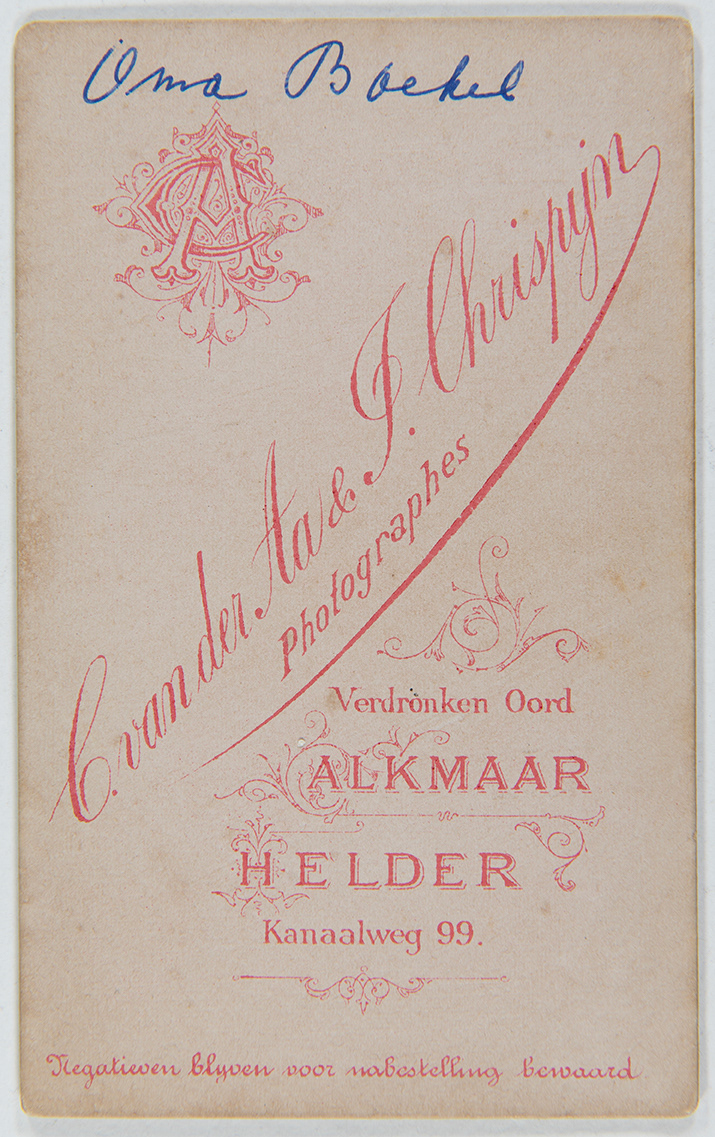 Oma Boekel
CA
C. van der Aa & J. Chrispijn
Photographes
Verdronken Oord
ALKMAAR
HELDER
Kanaalweg 99.
Negatieven blyven voor nabestelling bewaard